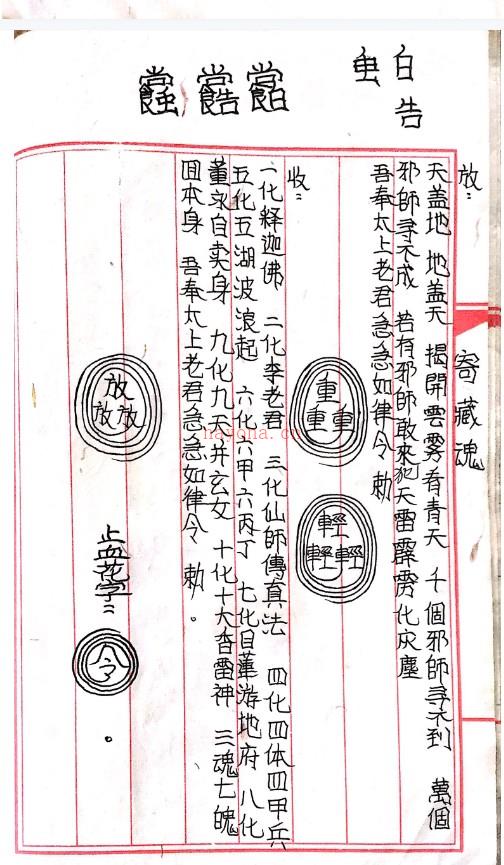 白告
寄藏魂
放：
天盖地 地盖天 揭開雲霧看青天 千個邪師寻不到 萬個
邪師寻不成 若有邪師敢來犯天雷霹雳化灰塵
吾奉太上老君急急如律令 勅
收：
重重重
輕輕輕
一化释迦佛 二化李老君 三化仙師傳真法 四化四体四甲兵
五化五湖波浪起 六化六甲六丙丁 七化目莲游地府 八化
董永自卖身 九化九天并玄女 十化十大杳雷神 三魂七魄
囬本身 吾奉太上老君急急如律令 勅。
放放放
止血花字：
令。
nayona.cn